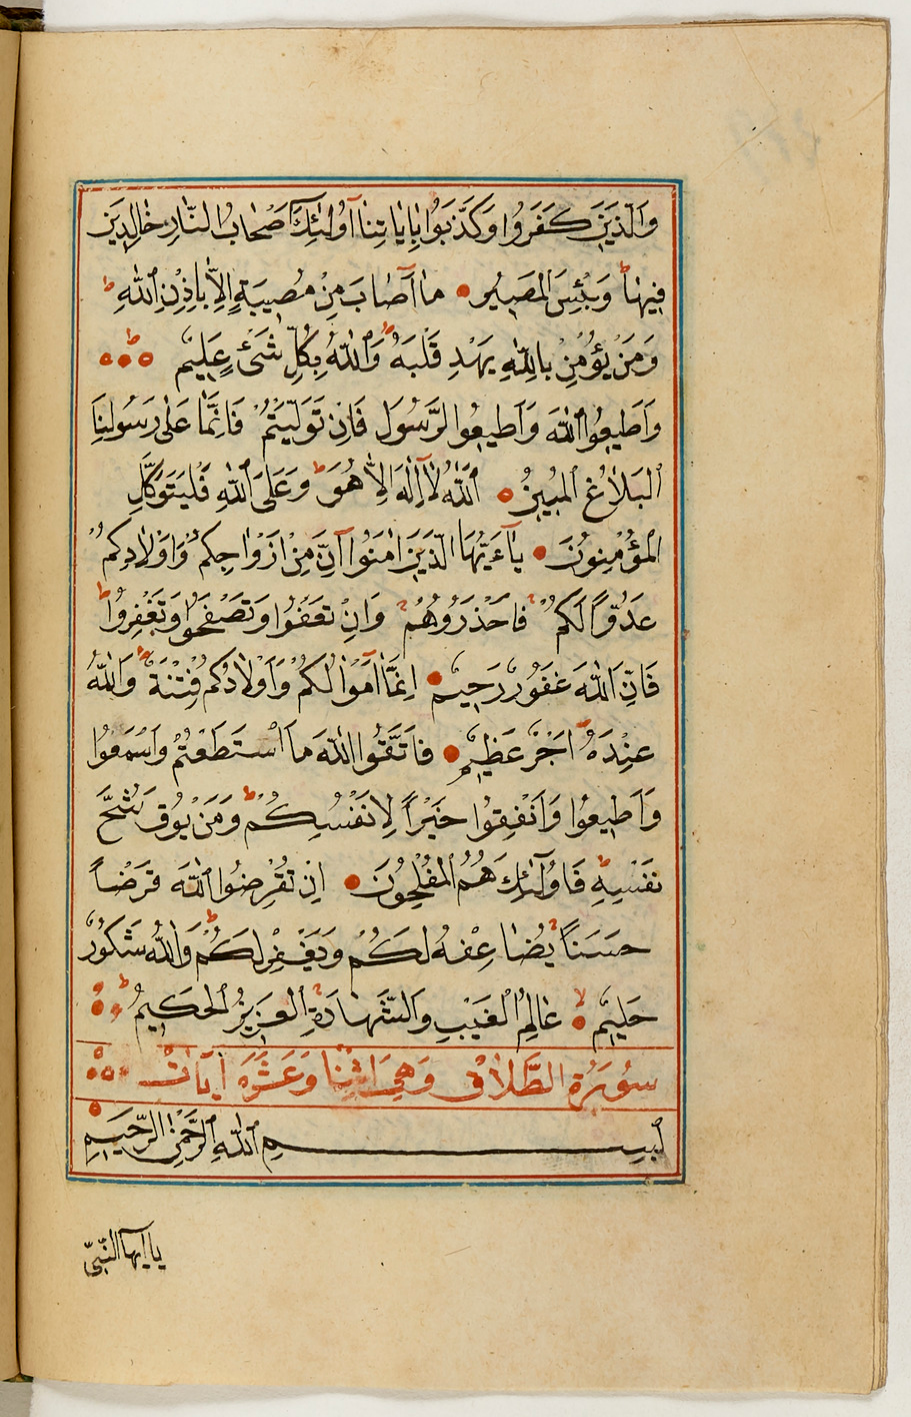 وَالَّذِينَ كَفَرُوا وَكَذَّبُوا بِاٰيَاتِنَا اُولٰئِكَ اَصْحَابُ النَّارِ خَالِدِينَ
فِيهَا وَبِئْسَ الْمَصِيرُ مَا اَصَابَ مِنْ مُصِيبَةٍ اِلَّا بِاِذْنِ اللّٰهِ
وَمَنْ يُؤْمِنْ بِاللّٰهِ يَهْدِ قَلْبَهُ وَاللّٰهُ بِكُلِّ شَىْءٍ عَلِيمٌ
وَاَطِيعُوا اللّٰهَ وَاَطِيعُوا الرَّسُولَ فَاِنْ تَوَلَّيْتُمْ فَاِنَّمَا عَلٰى رَسُولِنَا
الْبَلَاغُ الْمُبِينُ اَللّٰهُ لَا اِلٰهَ اِلَّا هُوَ وَعَلَى اللّٰهِ فَلْيَتَوَكَّلِ
الْمُؤْمِنُونَ يَا ءَيُّهَا الَّذِينَ اٰمَنُوا اِنَّ مِنْ اَزْوَاجِكُمْ وَاَوْلَادِكُمْ
عَدُوًّا لَكُمْ فَاحْذَرُوهُمْ وَاِنْ تَعْفُوا وَتَصْفَحُوا وَتَغْفِرُوا
فَاِنَّ اللّٰهَ غَفُورٌ رَحِيمٌ اِنَّمَا اَمْوَالُكُمْ وَاَوْلَادُكُمْ فِتْنَةٌ وَاللّٰهُ
عِنْدَهُ اَجْرٌ عَظِيمٌ فَاتَّقُوا اللّٰهَ مَا اسْتَطَعْتُمْ وَاسْمَعُوا
وَاَطِيعُوا وَاَنْفِقُوا خَيْرًا لِاَنْفُسِكُمْ وَمَنْ يُوقَ شُحَّ
نَفْسِهِ فَاُولٰئِكَ هُمُ الْمُفْلِحُونَ اِنْ تُقْرِضُوا اللّٰهَ قَرْضًا
حَسَنًا يُضَاعِفْهُ لَكُمْ وَيَغْفِرْ لَكُمْ وَاللّٰهُ شَكُورٌ
حَلِيمٌ عَالِمُ الْغَيْبِ وَالشَّهَادَةِ الْعَزِيزُ الْحَكِيمُ
سُورَةُ الطَّلَاقِ وَهِيَ اثْنَا وَعَشَرَه اٰيَاتْ
بِسْمِ اللّٰهِ الرَّحْمٰنِ الرَّحِيمِ
يَا اَيُّهَا النَّبِىُّ